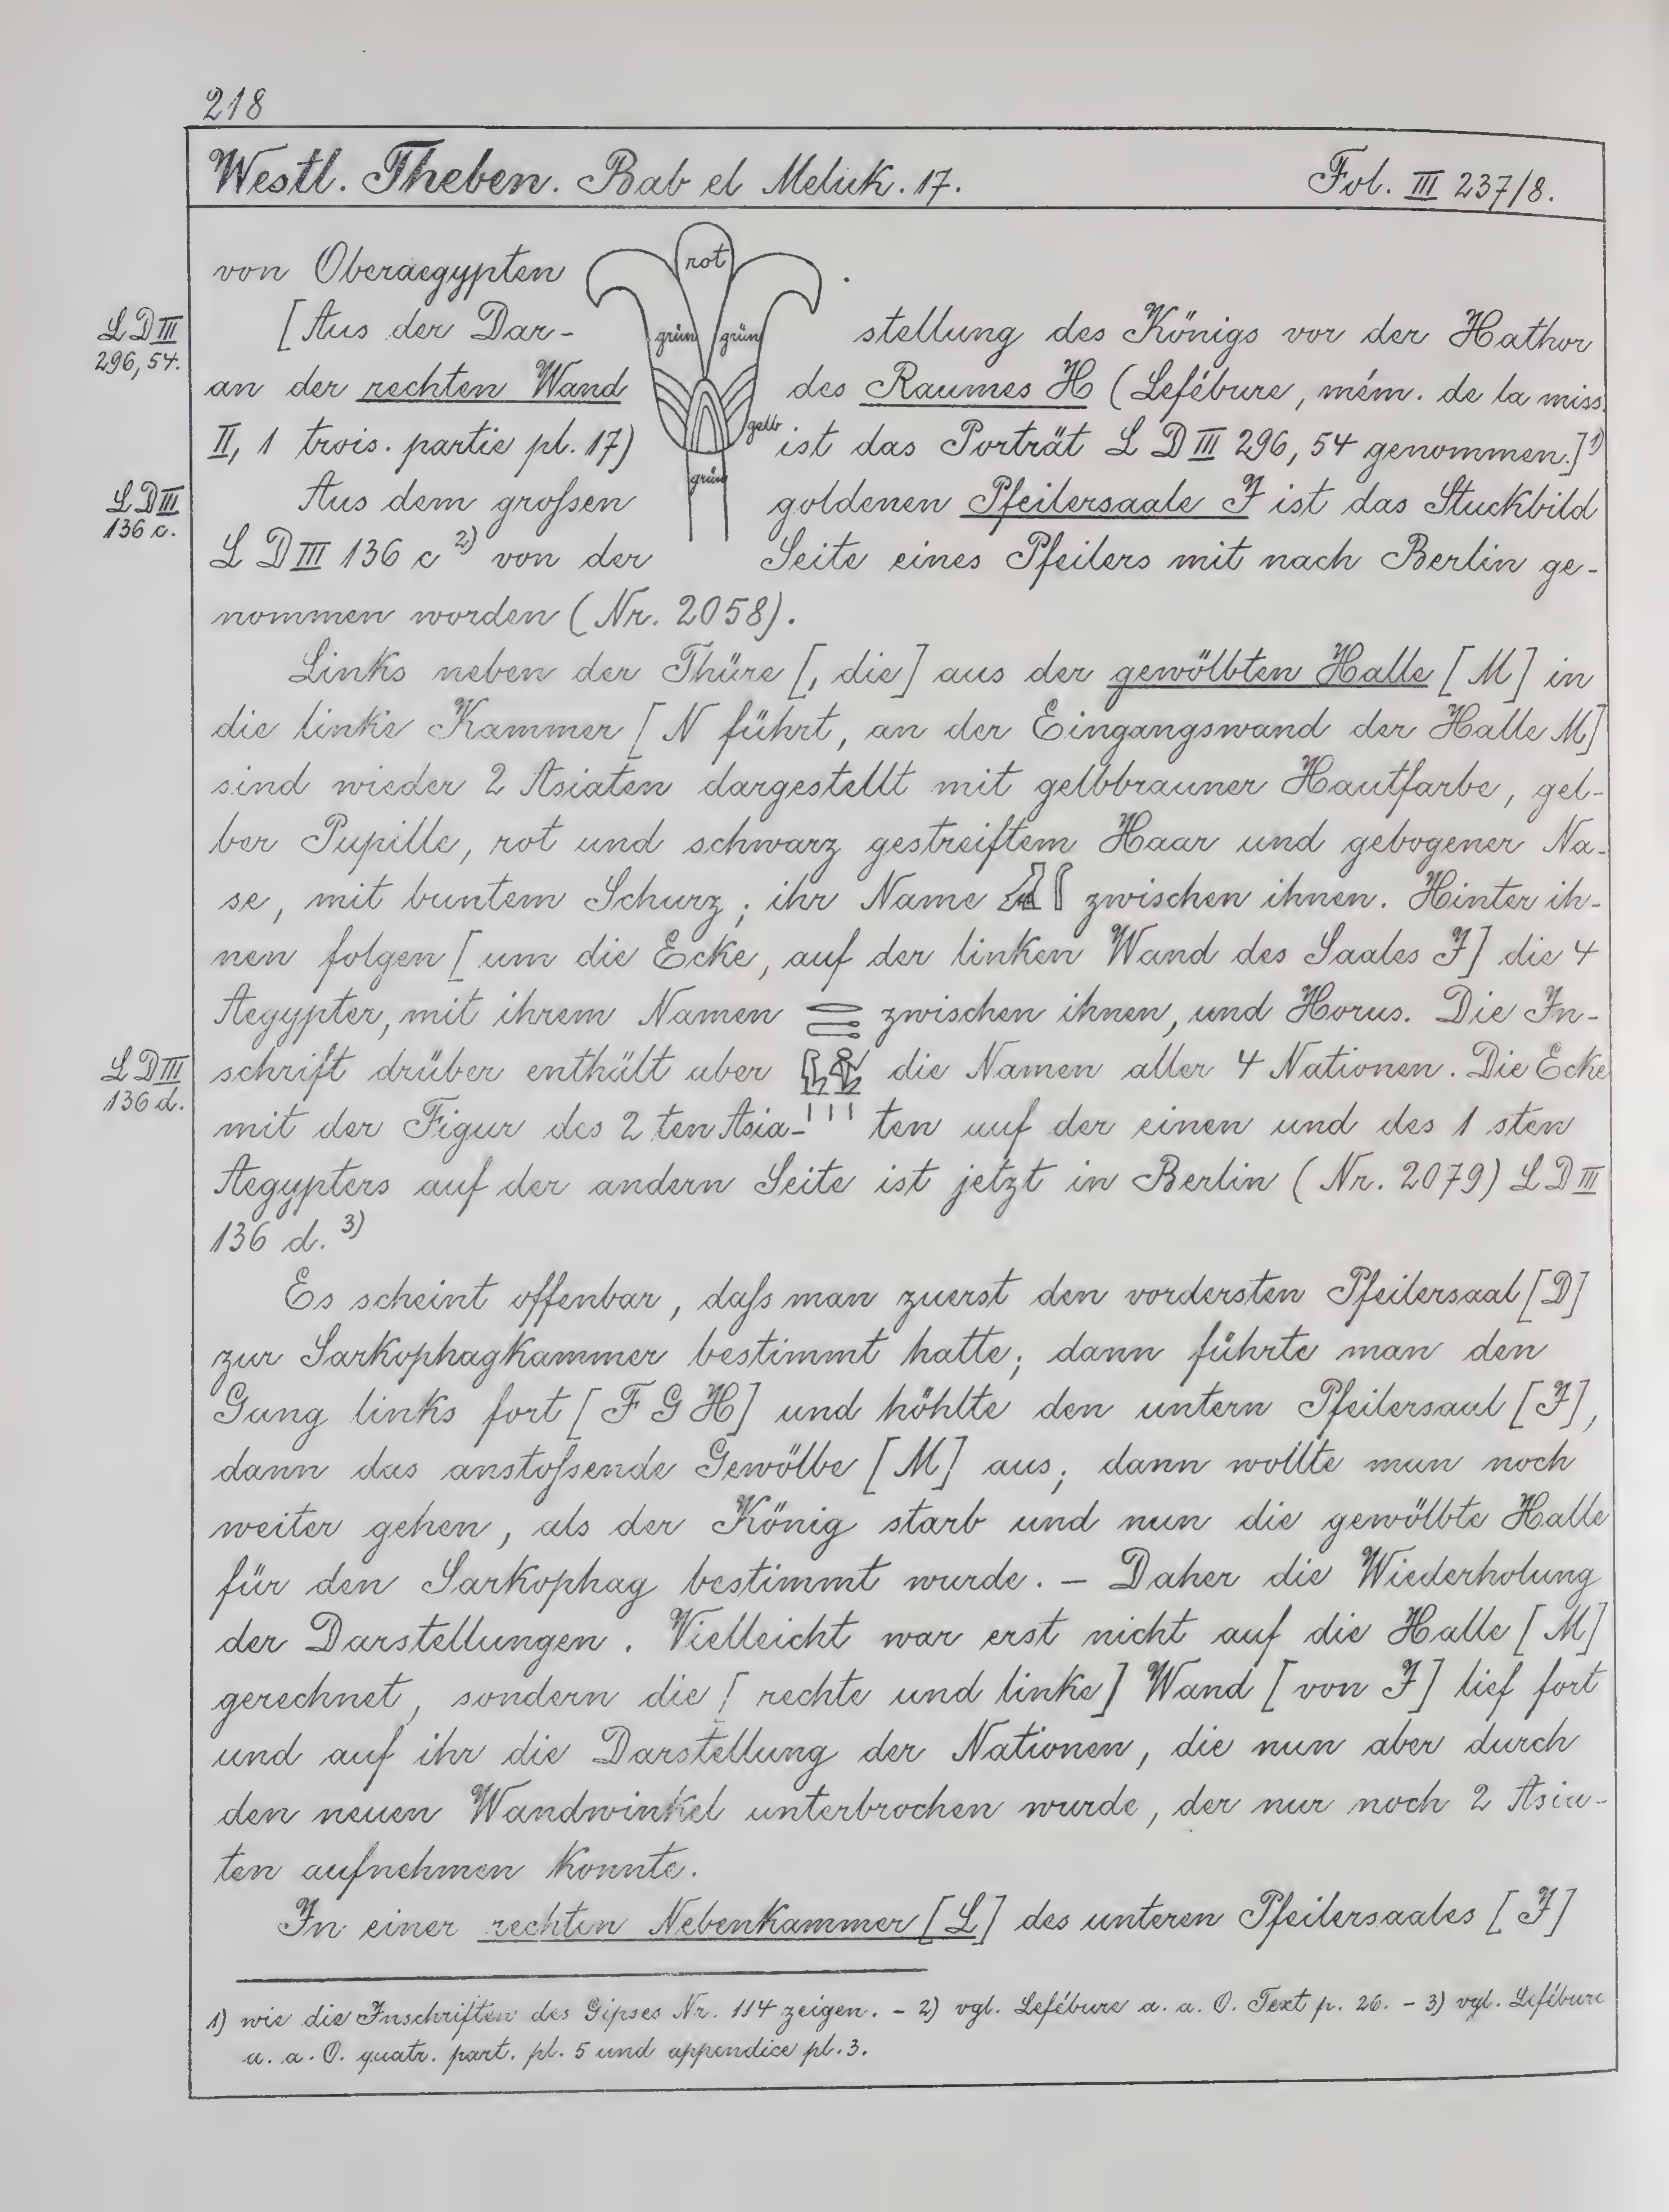 218
Westl. Theben. Bab el Meluk. 17. Fol. III 237/8.
von Oberaegypten rot .
LD III 296, 54. [Aus der Dar- grün grün stellung des Königs vor der Hathor
an der rechten Wand des Raumes H (Lefébure, mém. de la miss.
II, 1 trois. partie pl. 17) gelb ist das Porträt LD III 296, 54 genommen.]1)
LD III 136 c. Aus dem großen grün goldenen Pfeilersaale J ist das Stuckbild
LD III 136 c 2) von der Seite eines Pfeilers mit nach Berlin ge-
nommen worden (Nr. 2058).
Links neben der Thüre [, die] aus der gewölbten Halle [M] in
die linke Kammer [N führt, an der Eingangswand der Halle M]
sind wieder 2 Asiaten dargestellt mit gelbbrauner Hautfarbe, gel-
ber Pupille, rot und schwarz gestreiftem Haar und gebogener Na-
se, mit buntem Schurz; ihr Name zwischen ihnen. Hinter ih-
nen folgen [um die Ecke, auf der linken Wand des Saales J] die 4
Aegypter, mit ihrem Namen zwischen ihnen, und Horus. Die In-
LD III 136 d. schrift drüber enthält aber die Namen aller 4 Nationen. Die Ecke
mit der Figur des 2 ten Asia- ten auf der einen und des 1 sten
Aegypters auf der andern Seite ist jetzt in Berlin (Nr. 2079) LD III
136 d. 3)
Es scheint offenbar, daß man zuerst den vordersten Pfeilersaal [D]
zur Sarkophagkammer bestimmt hatte; dann führte man den
Gang links fort [F G H] und höhlte den untern Pfeilersaal [J],
dann das anstoßende Gewölbe [M] aus; dann wollte man noch
weiter gehen, als der König starb und nun die gewölbte Halle
für den Sarkophag bestimmt wurde. – Daher die Wiederholung
der Darstellungen. Vielleicht war erst nicht auf die Halle [M]
gerechnet, sondern die [rechte und linke] Wand [von J] lief fort
und auf ihr die Darstellung der Nationen, die nun aber durch
den neuen Wandwinkel unterbrochen wurde, der nur noch 2 Asia-
ten aufnehmen konnte.
In einer rechten Nebenkammer [L] des unteren Pfeilersaales [J]
1) wie die Inschriften des Gipses Nr. 114 zeigen. – 2) vgl. Lefébure a. a. O. Text p. 26. – 3) vgl. Lefébure
a. a. O. quatr. part. pl. 5 und appendice pl. 3.